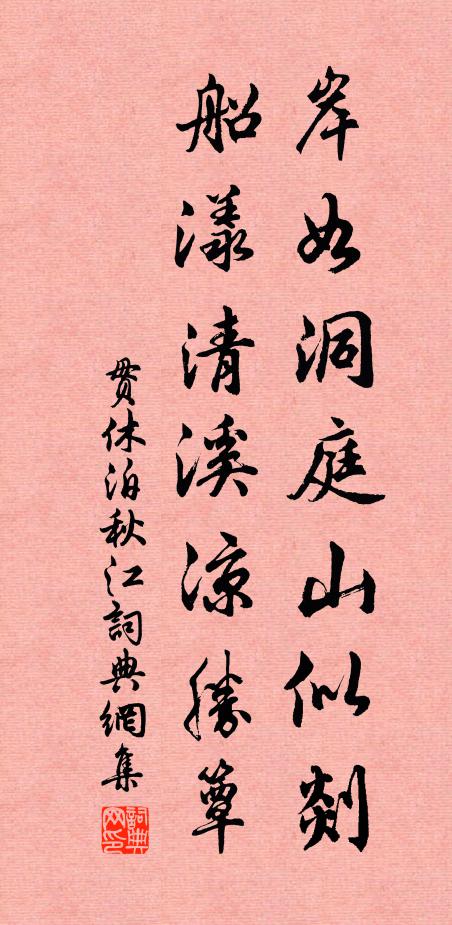 岸如洞庭山似剡
船漾清溪涼勝簟
貫休泊秋江詞典網集
詞典
网印